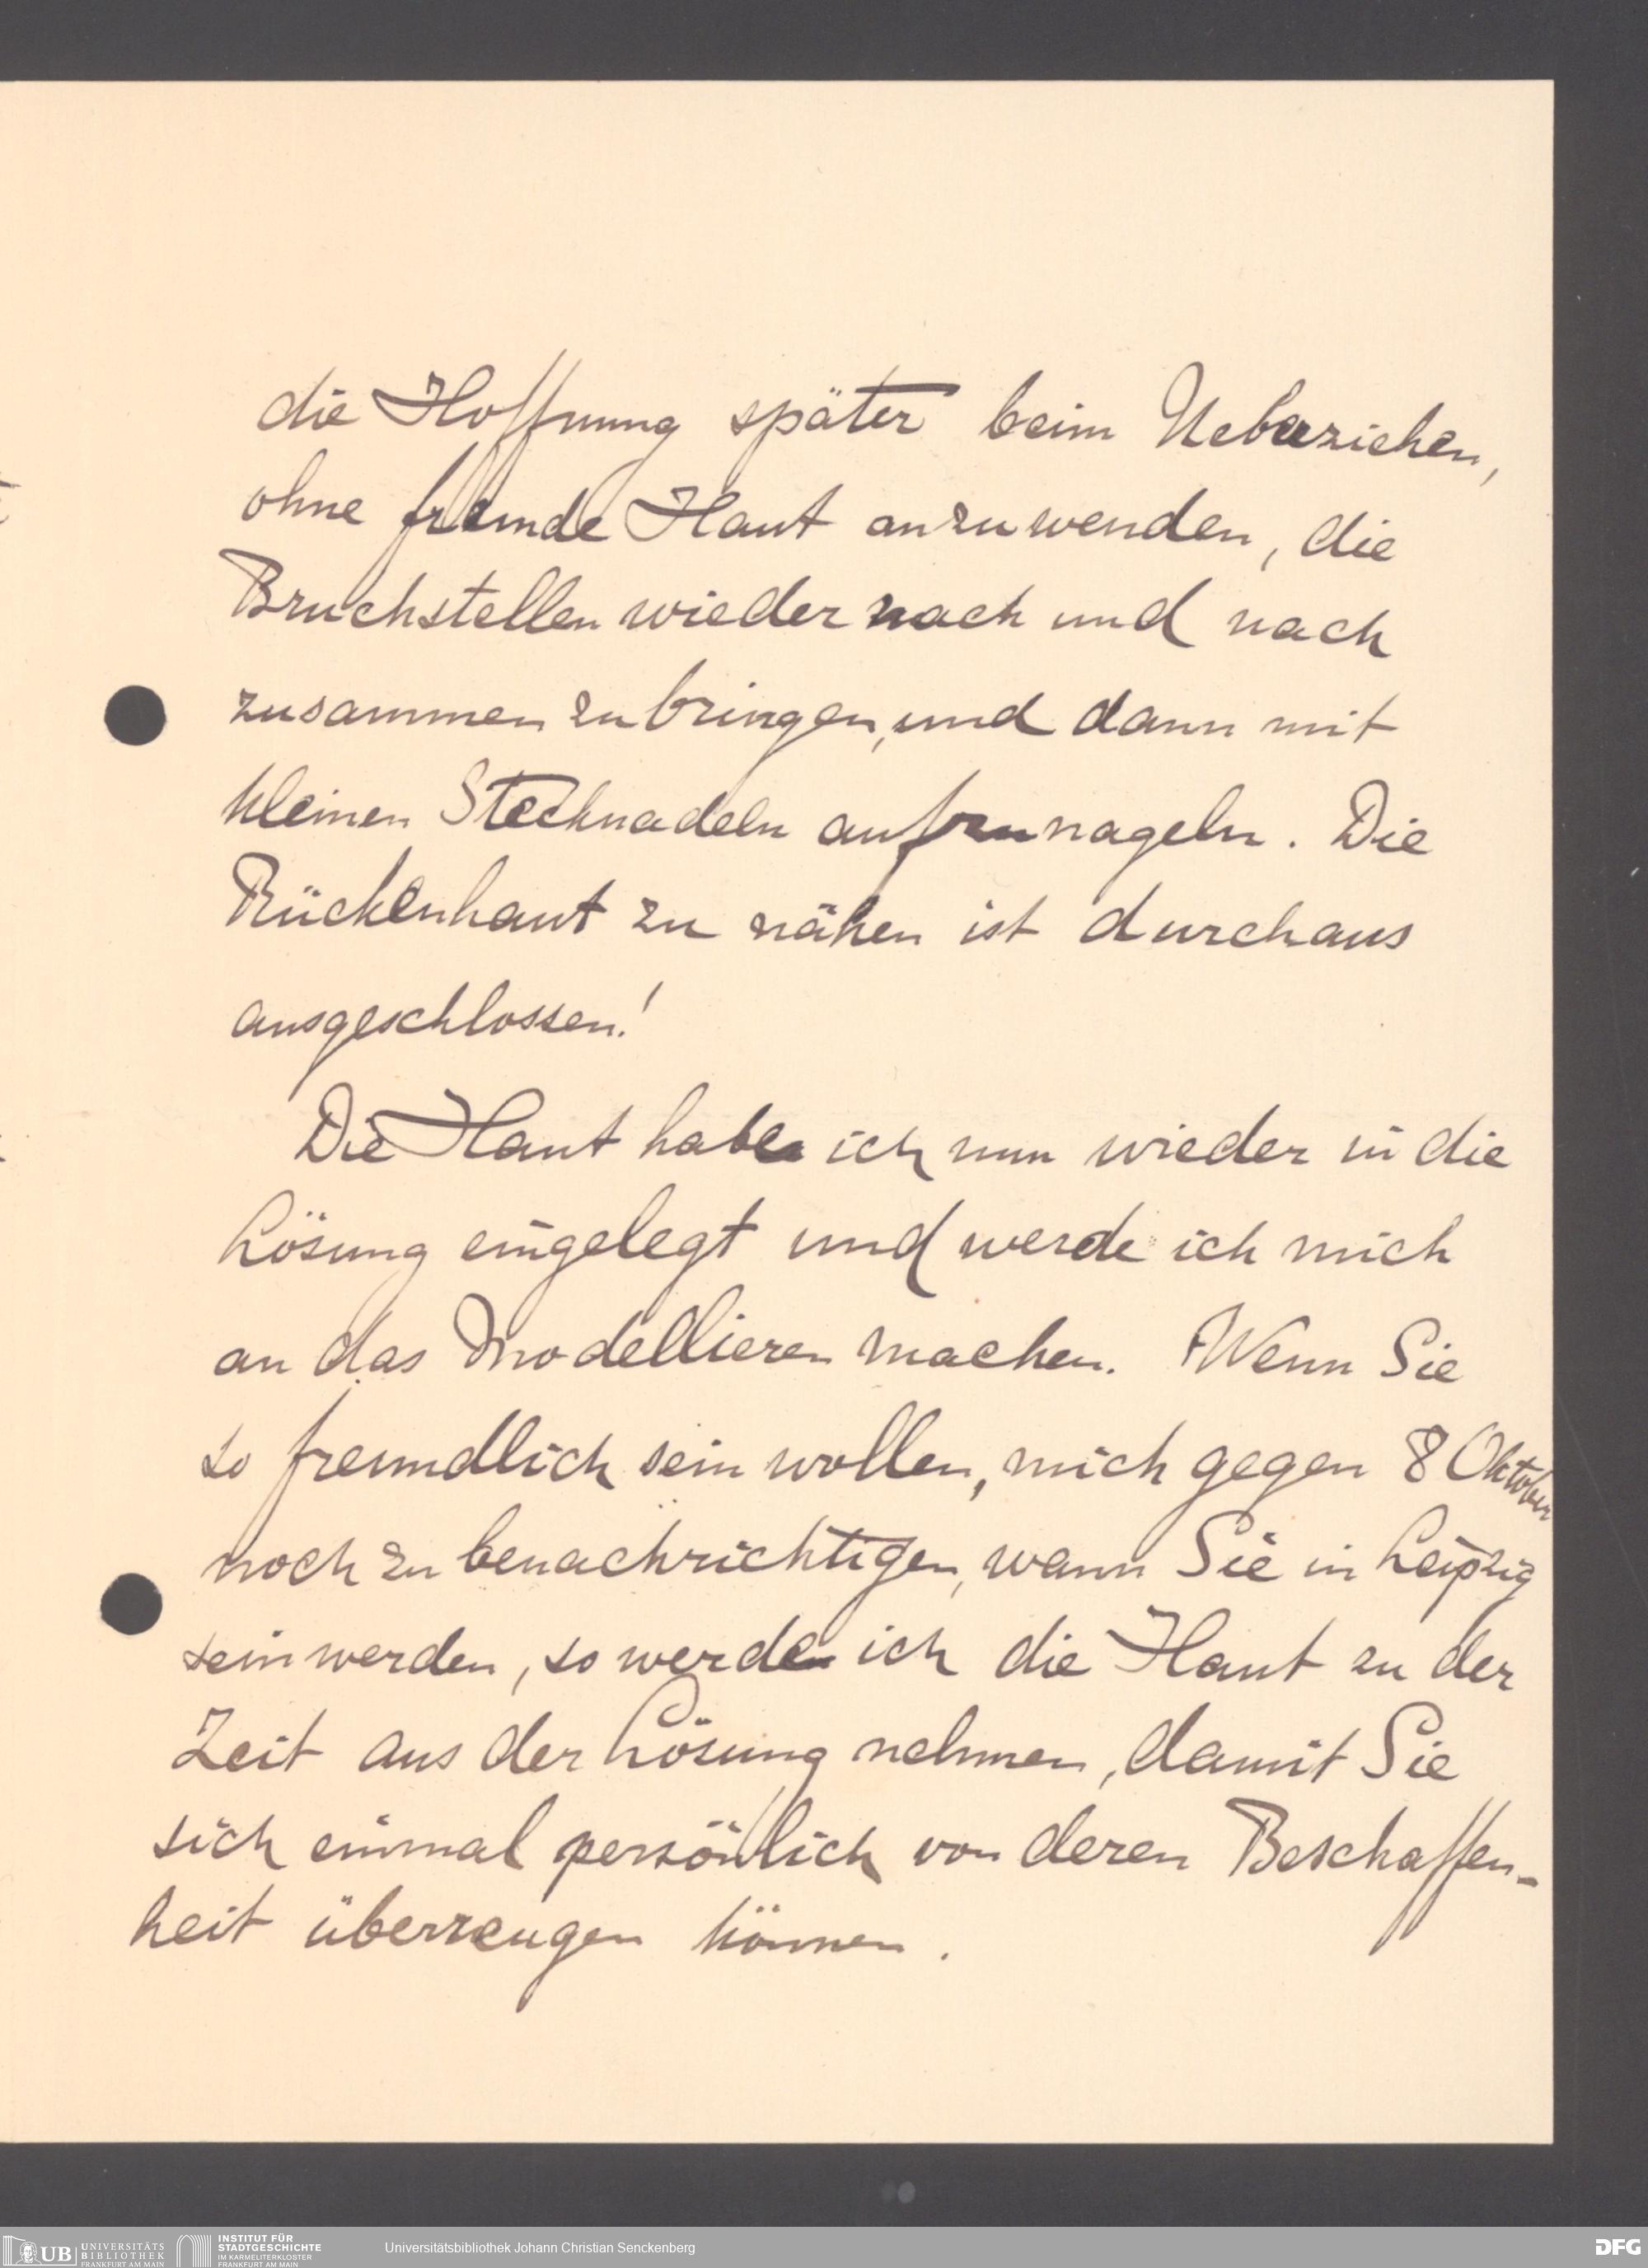 die Hoffnung später beim Ueberziehen,
ohne fremde Haut anzuwenden, die
Bruchstellen wieder nach und nach
zusammen zu bringen, und dann mit
kleinen Stecknadeln aufzunageln. Die
Rückenhaut zu nähen ist durchaus
ausgeschlossen!
Die Haut habe ich nun wieder in die
Lösung eingelegt und werde ich mich
an das Modellieren machen. Wenn Sie
so freundlich sein wollen, mich gegen 8 Oktober
noch zu benachrichtigen, wann Sie in Leipzig
sein werden, so werde ich die Haut zu der
Zeit aus der Lösung nehmen, damit Sie
sich einmal persönlich von deren Beschaffen-
heit überzeugen können.
UB UNIVERSITÄTS
BIBLIOTHEK
FRANKFURT AM MAIN
INSTITUT FÜR
STADTGESCHICHTE
IM KARMELITERKLOSTER
FRANKFURT AM MAIN
Universitätsbibliothek Johann Christian Senckenberg
DFG